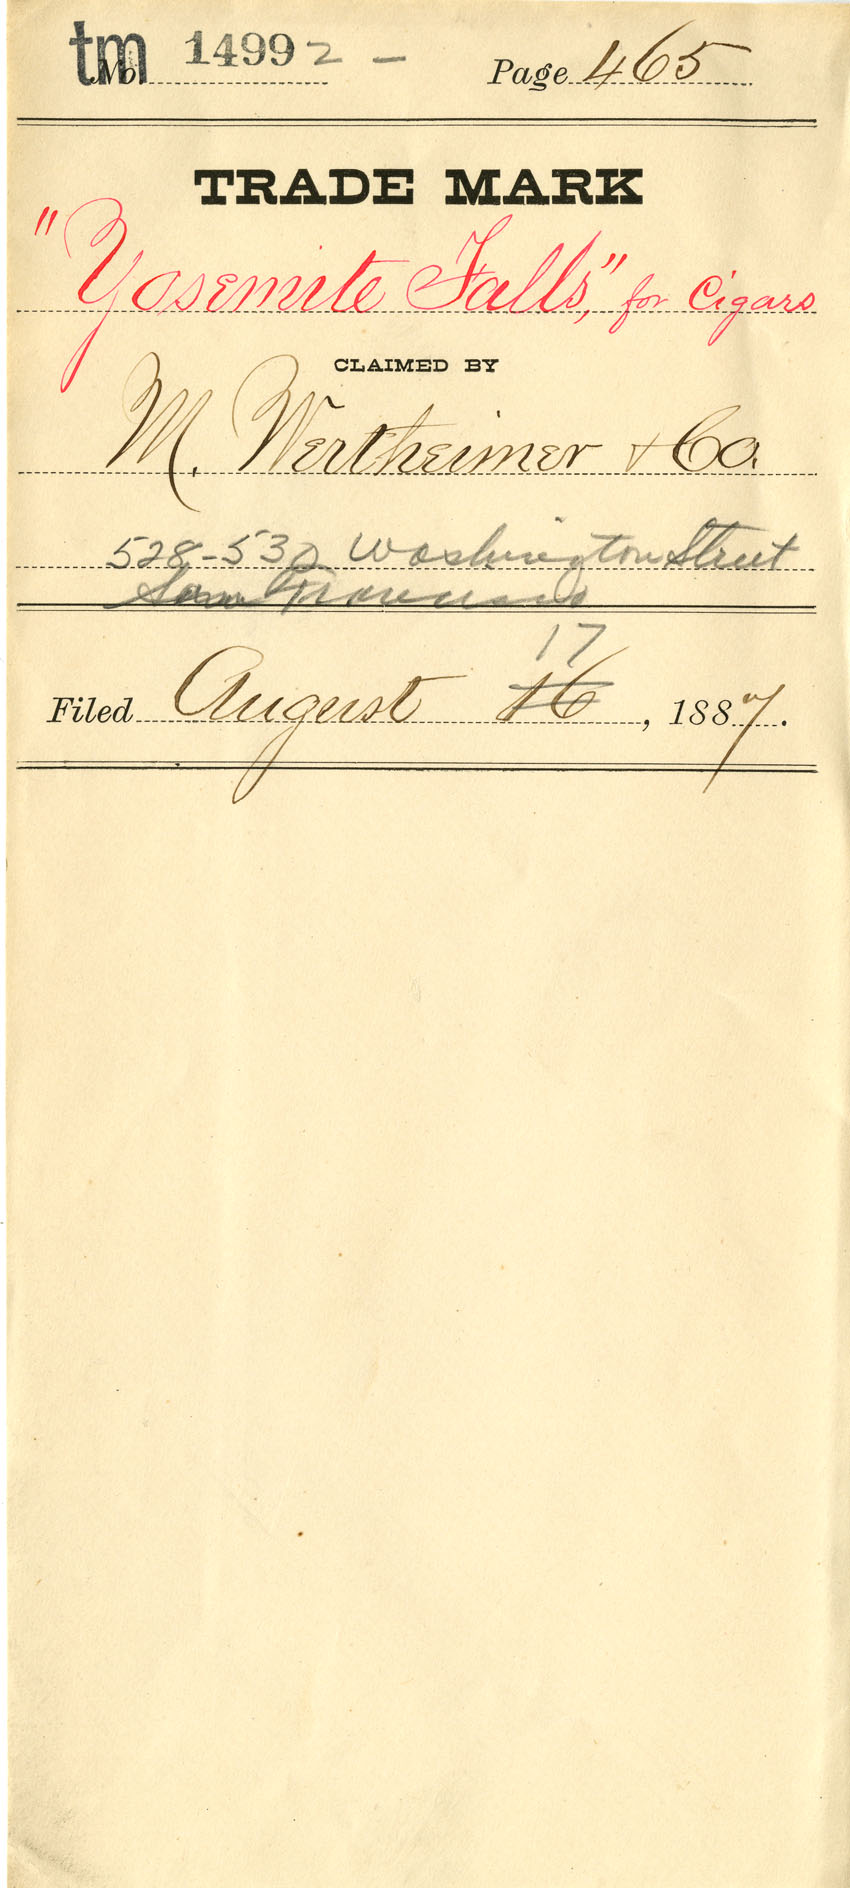 tm No. 14992 - Page 465
TRADE MARK
"Yosemite Falls," for Cigars
CLAIMED BY
M. Wertheimer & Co.
528-532 Washington Street
San Francisco
17
Filed August 16, 1887.